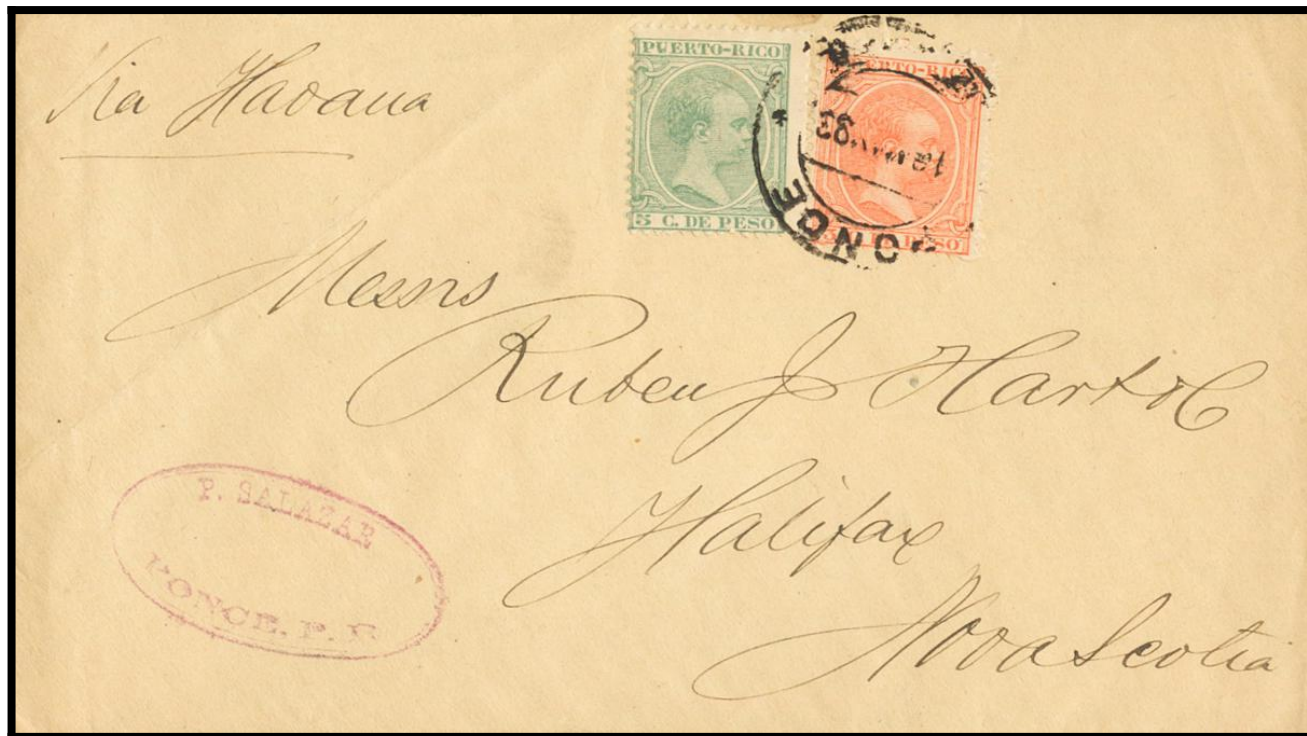 Via Havana
PUERTO-RICO
5 C. DE PESO
PUERTO-RICO
DE PESO
PONCE
93
Messrs
Ruben J Hart & Co
Halifax
Nova Scotia
P. SALAZAR
PONCE. P. R